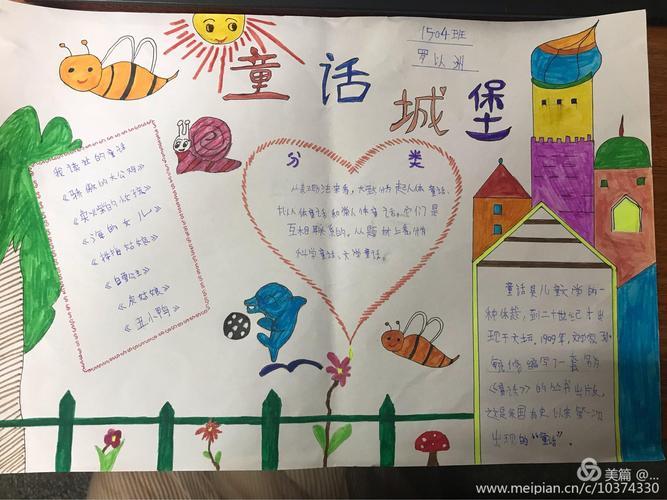 童话城堡
1504班
罗以洲
我读过的童话
《骄傲的大公鸡》
《卖火柴的小女孩》
《海的女儿》
《拇指姑娘》
《白雪公主》
《灰姑娘》
《丑小鸭》
分类
从表现方法来看，大致分为超人体童话、
拟人体童话和常人体童话。它们是
互相联系的，从题材上看有
科学童话、文学童话。
童话是儿童文学的一
种体裁，到二十世纪才出
现于大 1909年，
编写了一套名为
《童话》的丛书出版，
这是我国有史以来第一次
出现的“童话”。
美篇 @...
www.meipian.cn/c/10374330